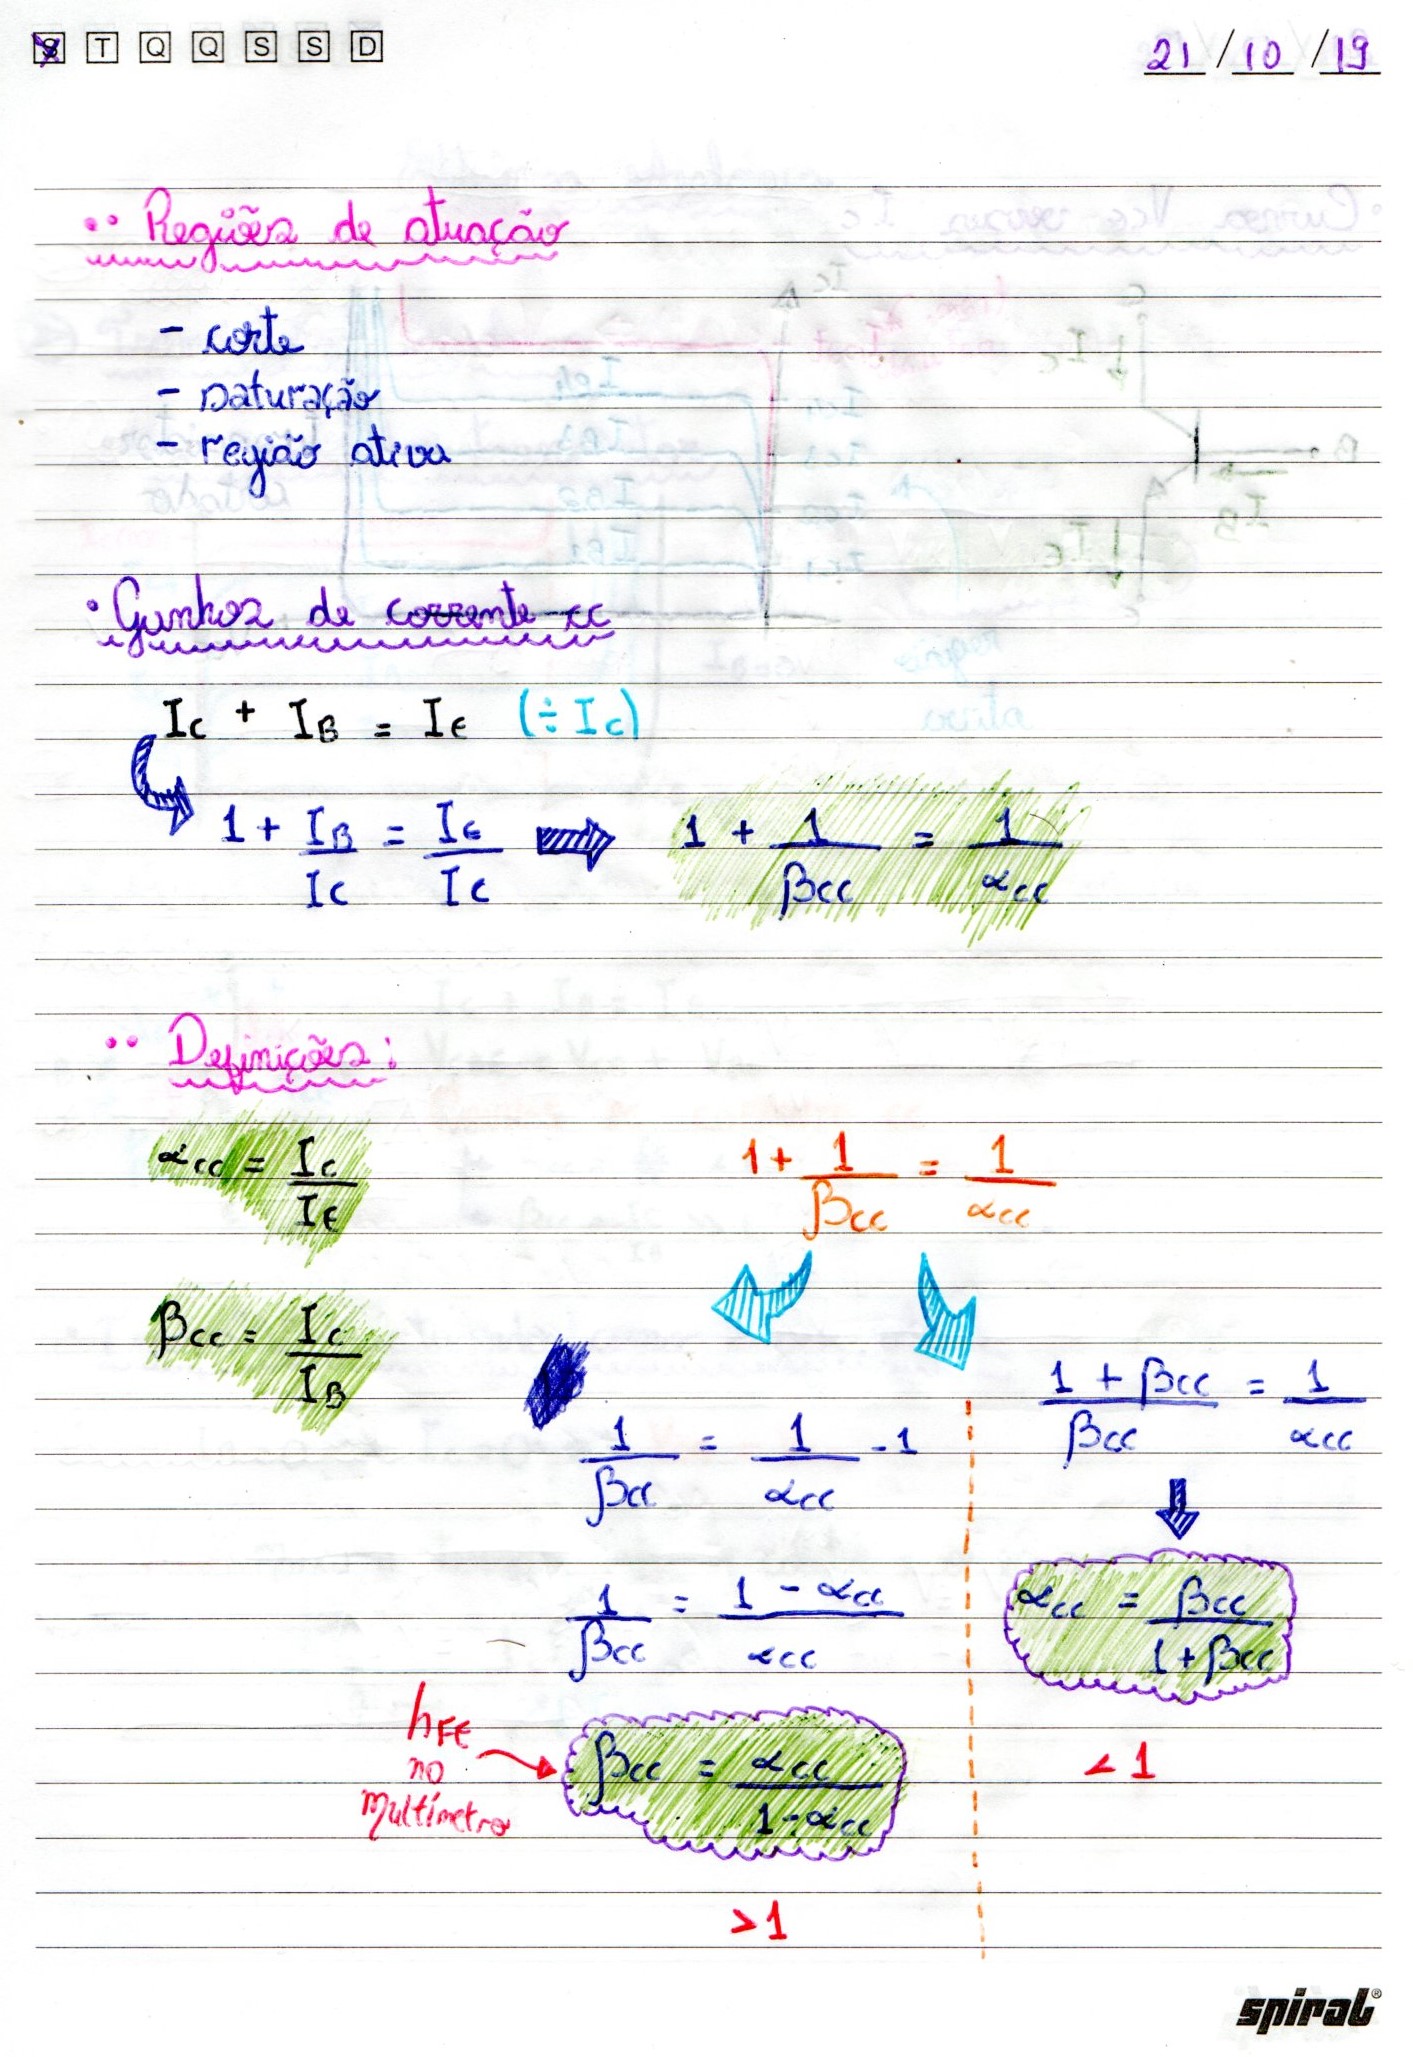 S T Q Q S S D 21/10/19
·· Regiões de atuação
- corte
- saturação
- região ativa
· Ganhos de corrente cc
IC + IB = IE (÷ IC)
1 + IB/IC = IE/IC ⇒ 1 + 1/βcc = 1/αcc
·· Definições:
αcc = IC/IE
1 + 1/βcc = 1/αcc
βcc = IC/IB
1/βcc = 1/αcc - 1
1/βcc = (1 - αcc)/αcc
hFE no multímetro
βcc = αcc/(1-αcc)
>1
(1 + βcc)/βcc = 1/αcc
αcc = βcc/(1+βcc)
<1
spiral®